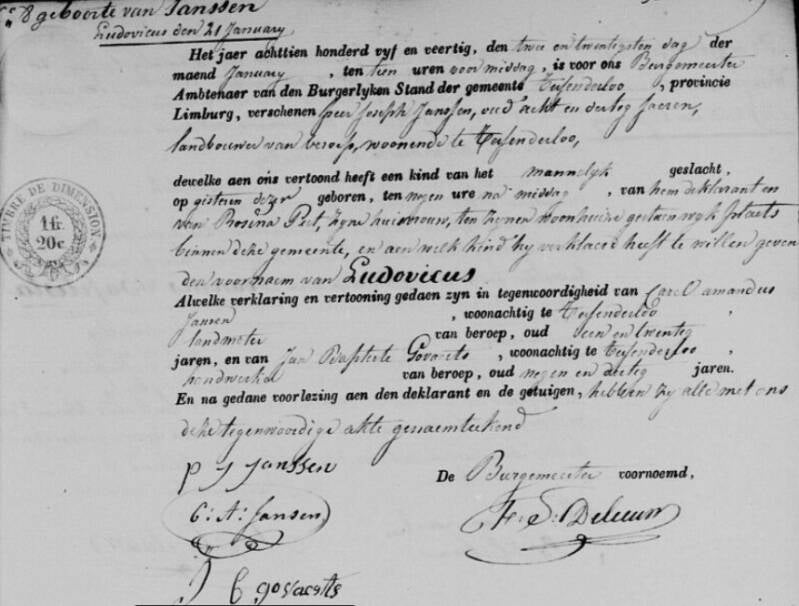 N° 8 geboorte van Janssen
Ludovicus den 21 January
Het jaer achttien honderd vyf en veertig, den twee en twentigsten dag der
maend January, ten tien uren voor middag, is voor ons Burgemeester
Ambtenaer van den Burgerlyken Stand der gemeente Tessenderloo, provincie
Limburg, verschenen Peer Joseph Janssen, oud acht en dertig jaeren,
landbouwer van beroep, woonende te Tessenderloo,
dewelke aen ons vertoond heeft een kind van het mannelyk geslacht,
op gisteren dezer geboren, ten negen ure na middag, van hem deklarant en
van Rosina Piet, zyne huisvrouw, ten zynen woonhuize gestaen wyk
binnen deze gemeente, en aen welk kind hy verklaerd heeft te willen geven
den voornaem van Ludovicus
Alwelke verklaring en vertooning gedaen zyn in tegenwoordigheid van Carel amandus
Jansen, woonachtig te Tessenderloo
landmeter van beroep, oud een en twenteg
jaren, en van Jan Baptiste Govaerts, woonachtig te Tessenderloo,
handwerker van beroep, oud negen en derteg jaren.
En na gedane voorlezing aen den deklarant en de getuigen, hebben zy alle met ons
deze tegenwoordige akte genaemteekend
P J Janssen
De Burgemeester voornoemd,
C: A: Jansen
J B govaerts
TIMBRE DE DIMENSION
1 fr.
20 c